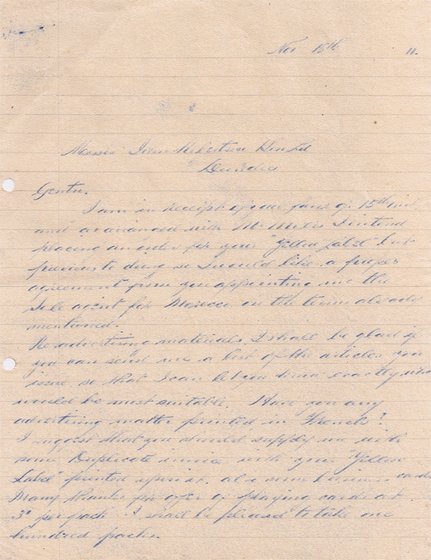 Nov 18th 11.
Messrs John Robertson & Son Ltd
Dundee
Gentn.
I am in receipt of your favor of 15th inst
and as arranged with Mr I intend
placing an order for your "Yellow Label" but
previous to doing so I would like a proper
agreement from you appointing me the
Sole agent for Morocco on the terms already
mentioned.
Re advertising materials, I shall be glad if
you can send me a list of the articles you
issue, so that I can let you know exactly what
would be most suitable. Have you any
advertising matter printed in French?
I suggest that you should supply me with
some Duplicate invoice with your "Yellow
Label" printed upon it, also some business cards
Many thanks for offer of playing cards at
3d per pack. I shall be pleased to take one
hundred packs.